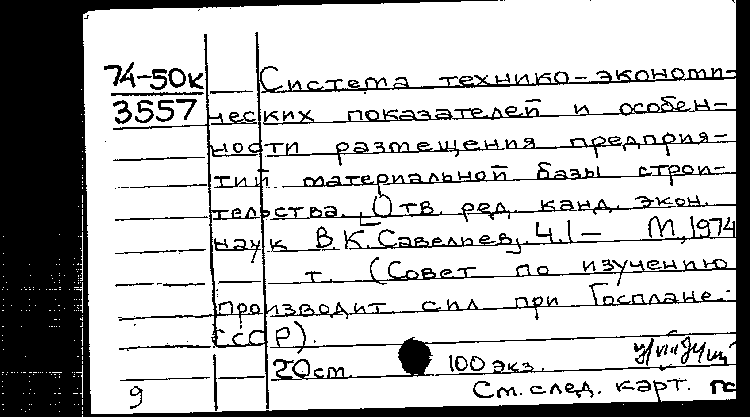 74-50к Система технико-экономи-
3557 ческих показателей и особен-
ности размещения предприя-
тий материальной базы строи-
тельства. [Отв. ред. канд. экон.
наук В.К. Савельев]. Ч.1- М, 1974
т. (Совет по изучению
производит сил при Госплане
СССР).
20см. 100 экз.
9 См. след. карт.